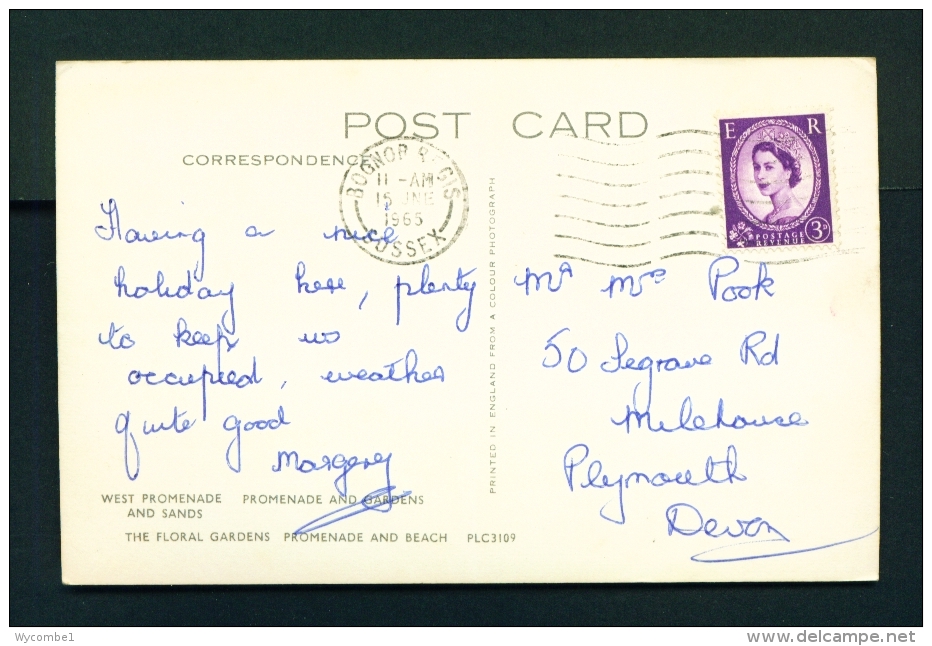 POST CARD
CORRESPONDENCE
BOGNOR REGIS
11-AM
15 JNE
1965
SUSSEX
E R
POSTAGE
REVENUE
3D
Having a nice
holiday here, plenty
to keep us
occupied, weather
quite good
Margery
Mr Mrs Pook
50 Segrave Rd
Milehouse
Plymouth
Devon
PRINTED IN ENGLAND FROM A COLOUR PHOTOGRAPH
WEST PROMENADE PROMENADE AND GARDENS
AND SANDS
THE FLORAL GARDENS PROMENADE AND BEACH PLC3109
Wycombe1
www.delcampe.net